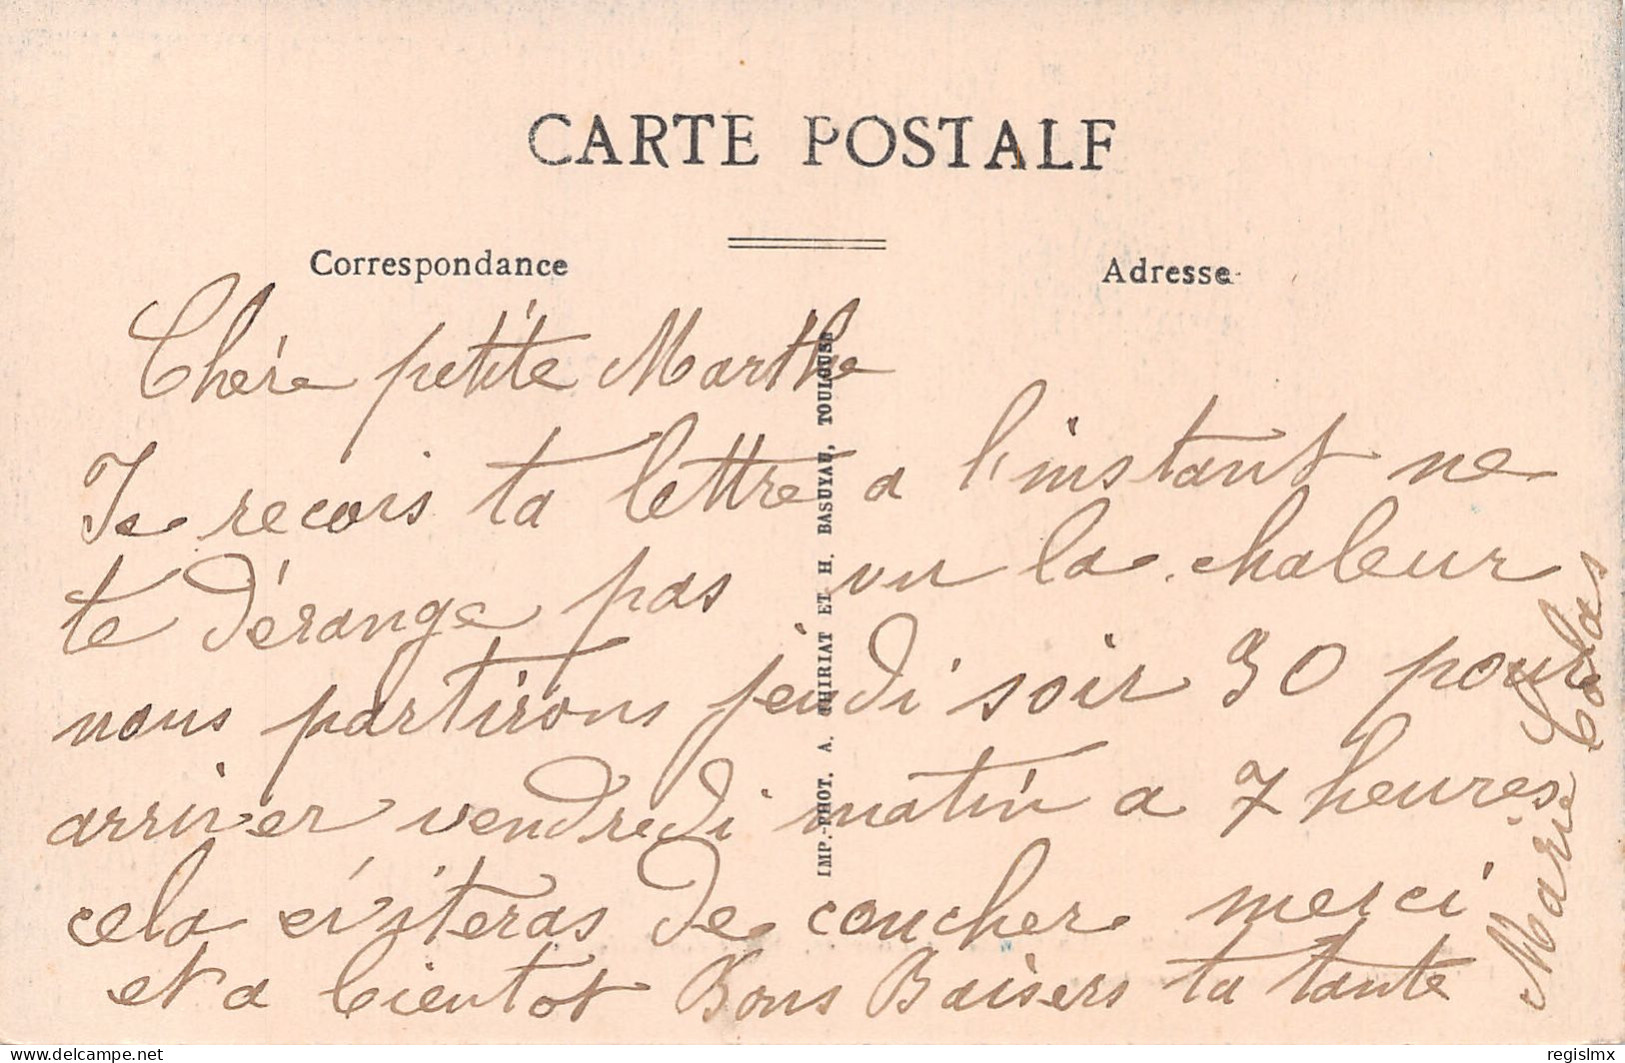 CARTE POSTALE
Correspondance
Adresse
Chère petite Marthe
Je recois ta lettre a l'instant ne
te dérange pas vu la chaleur
nous partirons jeudi soir 30 pour
arriver vendredi matin a 7 heures
cela éviteras de coucher merci
et a bientot Bons Baisers ta tante
Marie Colas
IMP.-PHOT. A. THIRIAT ET H. BASUYAU, TOULOUSE
delcampe.net
regislmx